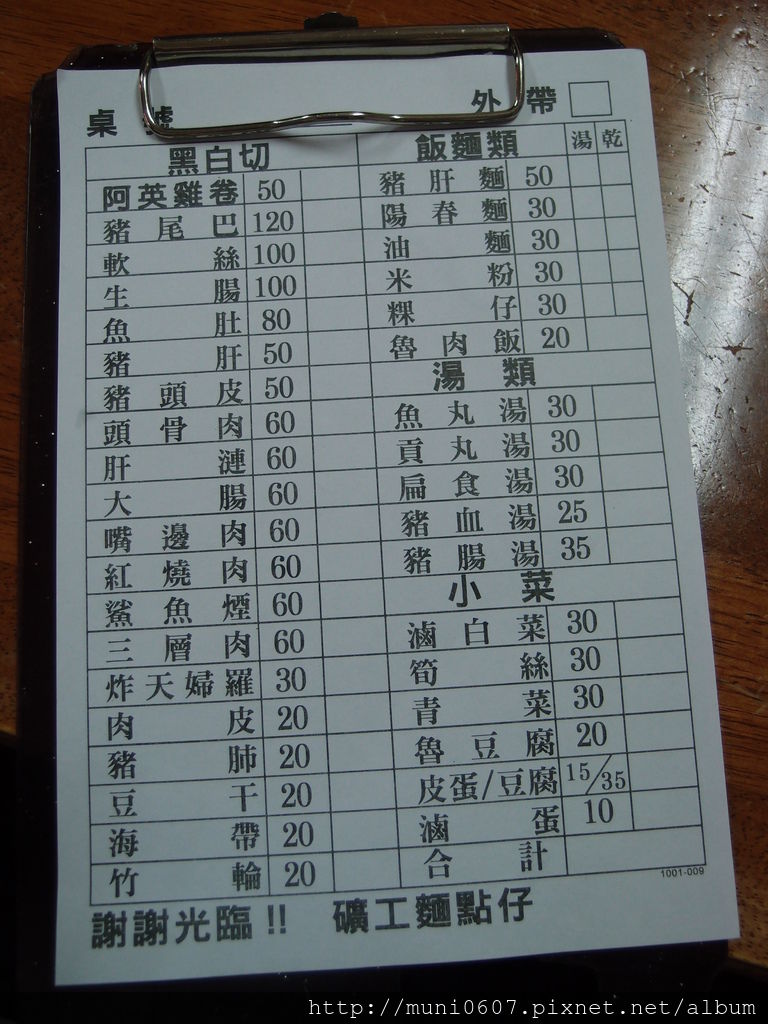 桌號
外帶
黑白切
阿英雞卷 50
豬尾巴 120
軟絲 100
生腸 100
魚肚 80
豬肝 50
豬頭皮 50
頭骨肉 60
肝漣 60
大腸 60
嘴邊肉 60
紅燒肉 60
鯊魚煙 60
三層肉 60
炸天婦羅 30
肉皮 20
豬肺 20
豆干 20
海帶 20
竹輪 20
飯麵類 湯 乾
豬肝麵 50
陽春麵 30
油麵 30
米粉 30
粿仔 30
魯肉飯 20
湯類
魚丸湯 30
貢丸湯 30
扁食湯 30
豬血湯 25
豬腸湯 35
小菜
滷白菜 30
筍絲 30
青菜 30
魯豆腐 20
皮蛋/豆腐 15/35
滷蛋 10
合計
1001-009
謝謝光臨!! 礦工麵點仔
http://muni0607.pixnet.net/album